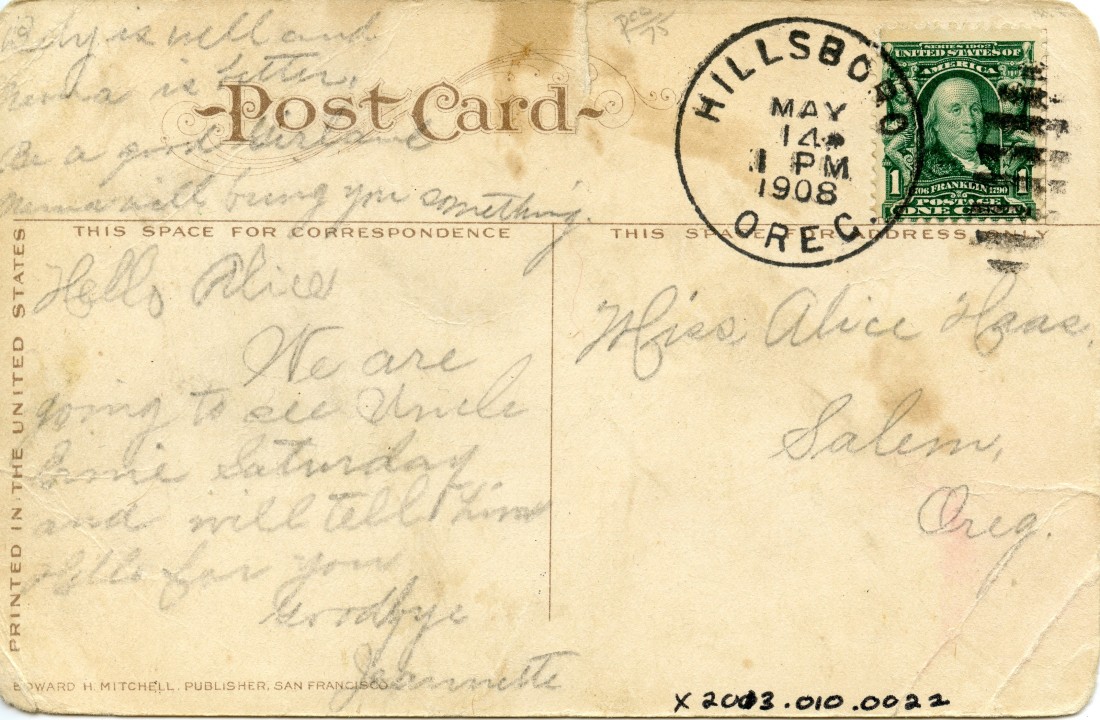 Baby is well and
Mema is better.
Be a good Girl and
Mema will bring you something.
Post Card
THIS SPACE FOR CORRESPONDENCE
THIS SPACE FOR ADDRESS ONLY
Hello Alice
We are
going to see Uncle
Ernie Saturday
and will tell him
Hello for you
Goodbye
Jeannette
Miss Alice Haas,
Salem,
Oreg.
HILLSBORO
MAY
14
1 PM
1908
OREG.
SERIES 1902
UNITED STATES OF
AMERICA
1 1
1706 FRANKLIN 1790
POSTAGE
ONE CENT
PRINTED IN THE UNITED STATES
EDWARD H. MITCHELL, PUBLISHER, SAN FRANCISCO
X2013.010.0022